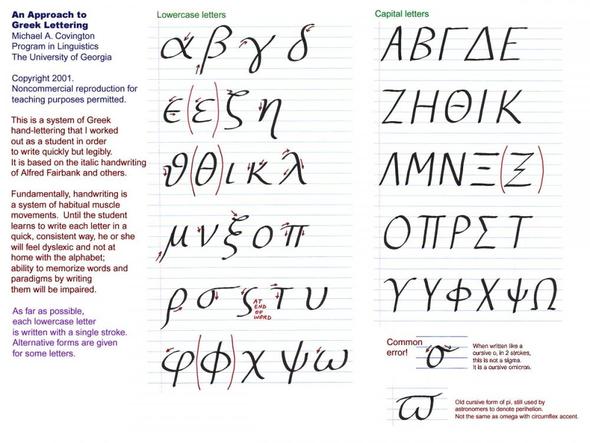 An Approach to
Greek Lettering
Michael A. Covington
Program in Linguistics
The University of Georgia
Copyright 2001.
Noncommercial reproduction for
teaching purposes permitted.
This is a system of Greek
hand-lettering that I worked
out as a student in order
to write quickly but legibly.
It is based on the italic handwriting
of Alfred Fairbank and others.
Fundamentally, handwriting is
a system of habitual muscle
movements. Until the student
learns to write each letter in a
quick, consistent way, he or she
will feel dyslexic and not at
home with the alphabet;
ability to memorize words and
paradigms by writing
them will be impaired.
As far as possible,
each lowercase letter
is written with a single stroke.
Alternative forms are given
for some letters.
Lowercase letters
α β γ δ
ϵ (ε) ζ η
ϑ (θ) ι κ λ
μ ν ξ ο π
ρ σ ς τ υ
AT
END
OF
WORD
φ (ϕ) χ ψ ω
Capital letters
Α Β Γ Δ Ε
Ζ Η Θ Ι Κ
Λ Μ Ν Ξ (Ξ)
Ο Π Ρ Σ Τ
Υ Υ Φ Χ Ψ Ω
Common
error!
σ
When written like a
cursive o, in 2 strokes,
this is not a sigma.
It is a cursive omicron.
ϖ
Old cursive form of pi, still used by
astronomers to denote perihelion.
Not the same as omega with circumflex accent.